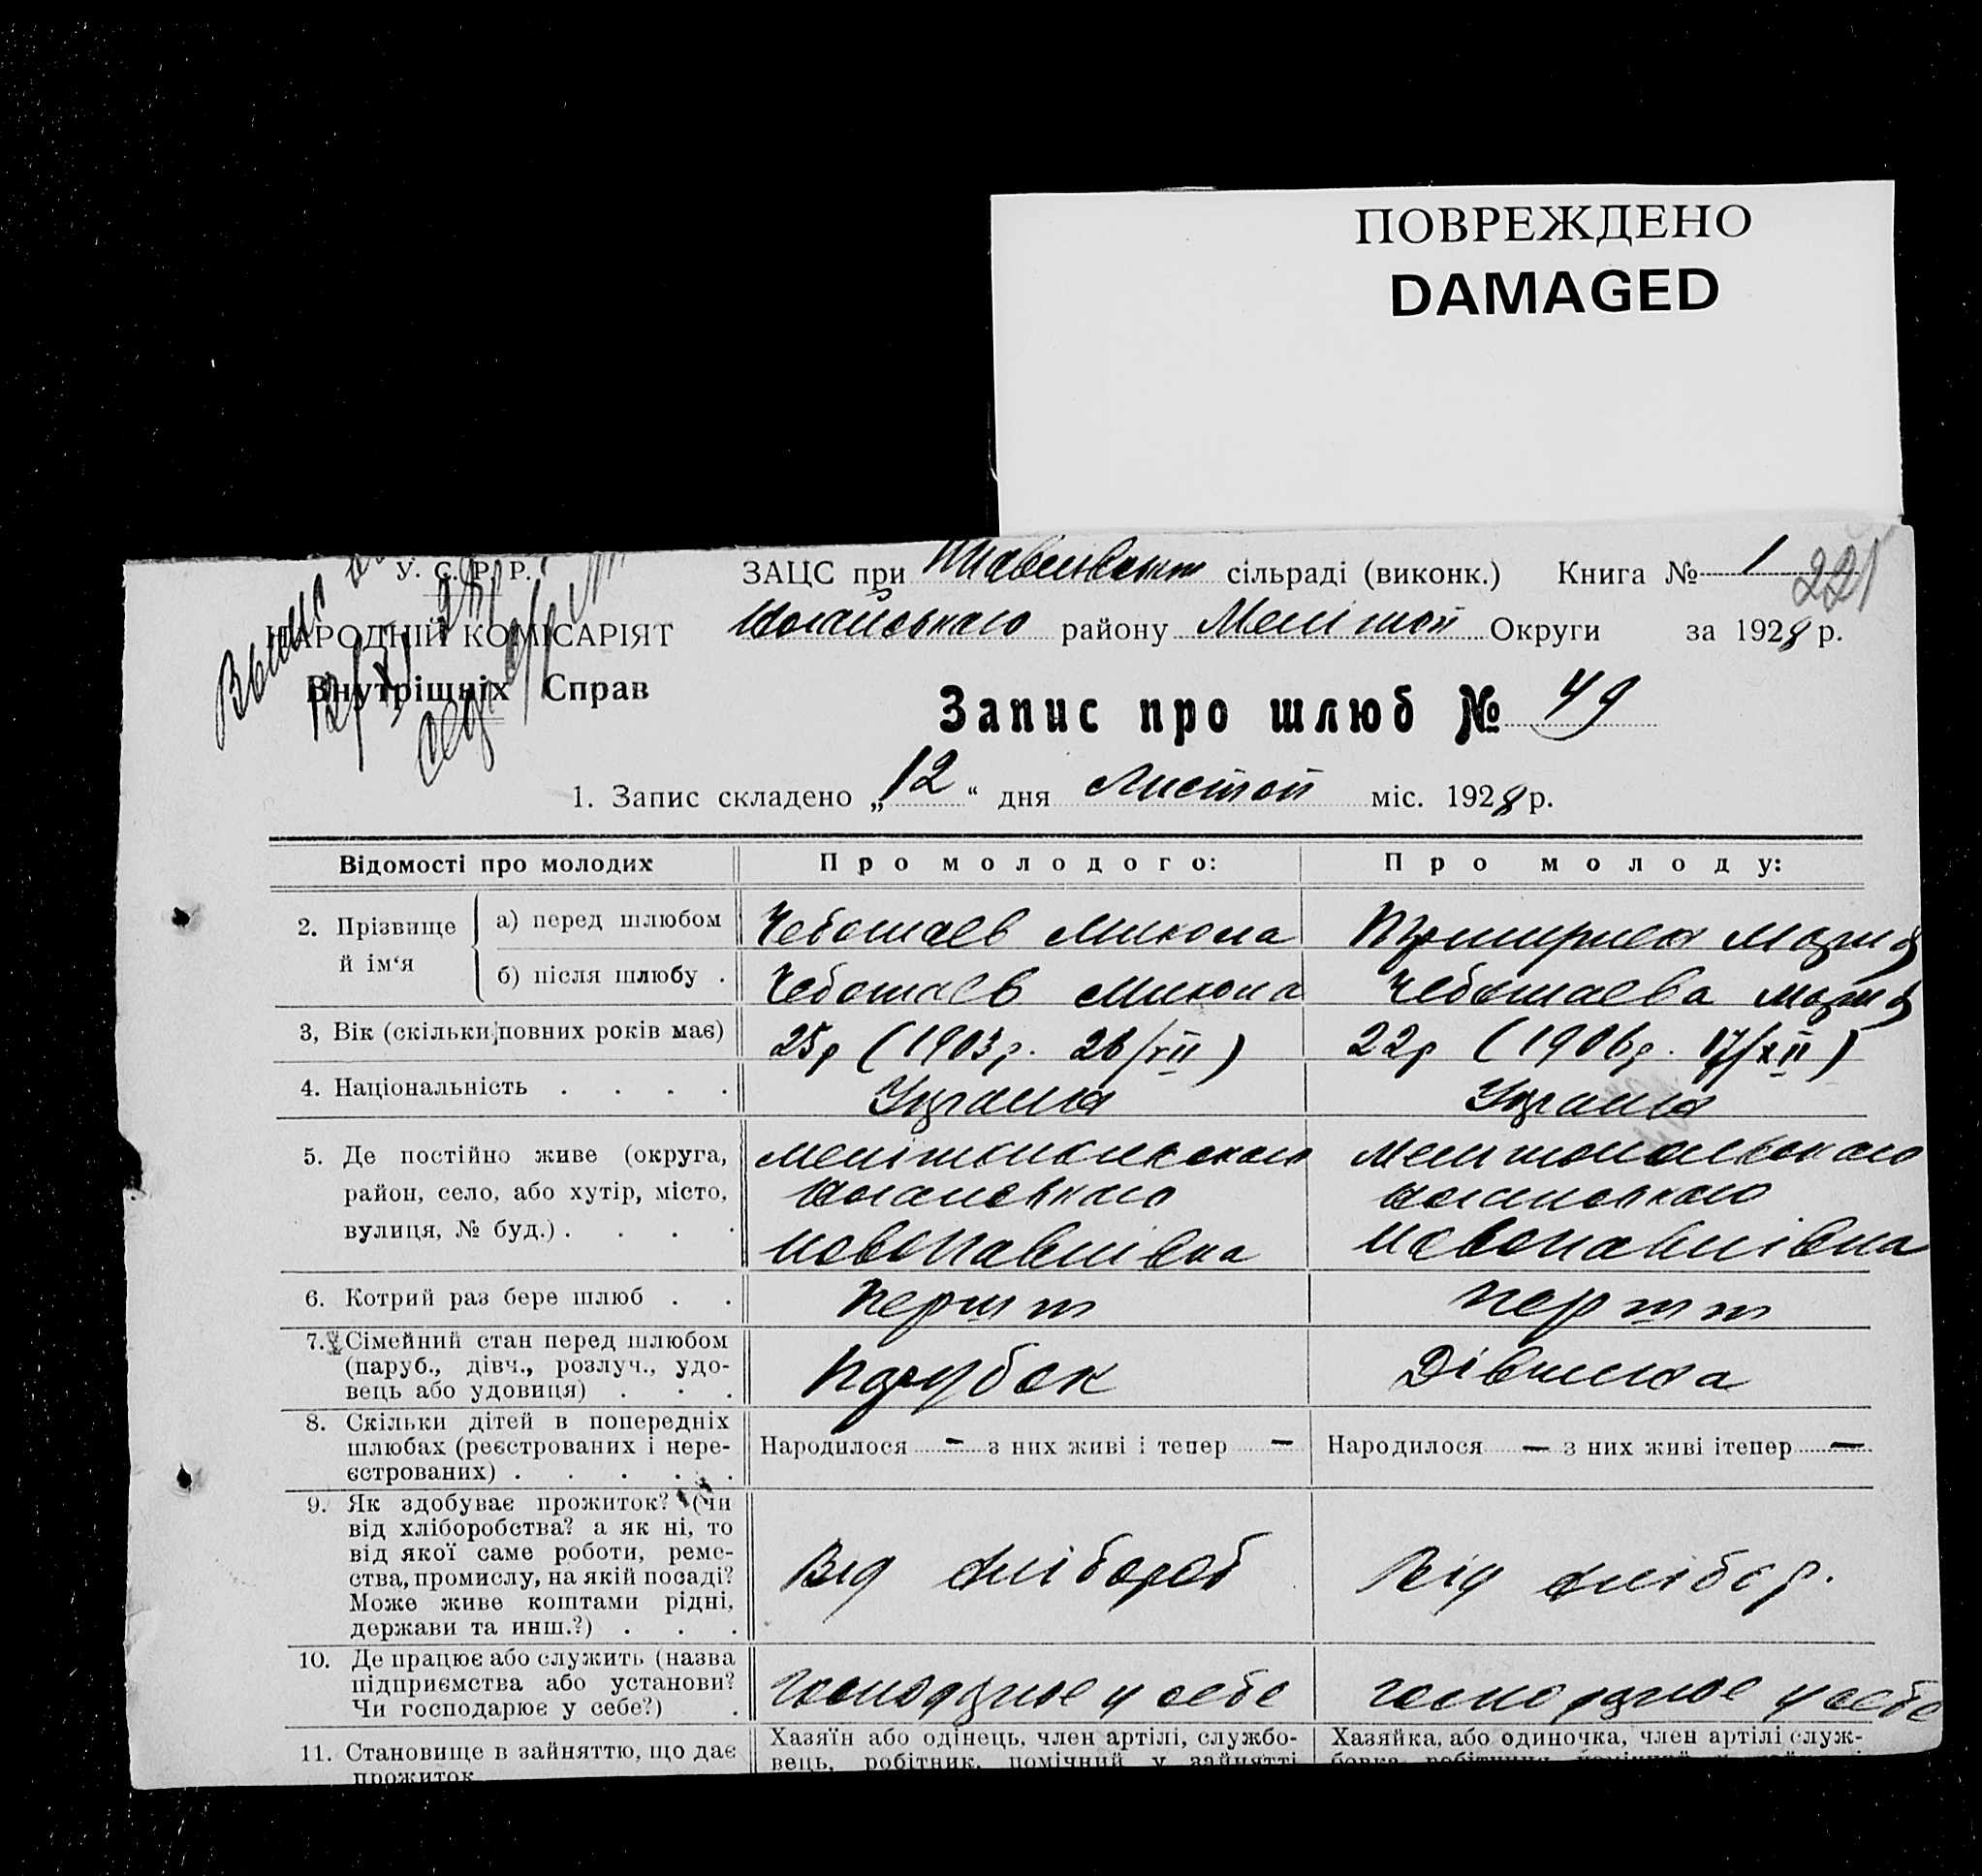 ПОВРЕЖДЕНО
DAMAGED
У. С. Р. Р.
ЗАЦС при сільраді (виконк.) Книга № 1
221
НАРОДНІЙ КОМІСАРІЯТ
району Мелітоп Округи за 1928 р.
Внутрішніх Справ
Запис про шлюб № 49
1. Запис складено „12“ дня Листоп міс. 1928 р.
Відомості про молодих
Про молодого:
Про молоду:
2. Прізвище й ім‘я
а) перед шлюбом
Чеботаев Микола
Мария
б) після шлюбу .
Чеботаев Микола
Чеботаева Мария
3, Вік (скільки повних років має)
25р (1903р. 26/VII)
22р (1906р. 17/XII)
4. Національність . . . .
5. Де постійно живе (округа,
район, село, або хутір, місто,
вулиця, № буд.) . . . .
Мелітопольского
Ногайського
Новопавлівка
Мелитопольського
Ногайського
Новопавлівка
6. Котрий раз бере шлюб . .
перший
перший
7. Сімейний стан перед шлюбом
(паруб., дівч., розлуч., удо-
вець або удовиця) . . .
Парубок
Дівчина
8. Скільки дітей в попередніх
шлюбах (реєстрованих і нере-
єстрованих) . . . . .
Народилося — з них живі і тепер —
Народилося — з них живі ітепер —
9. Як здобуває прожиток? (чи
від хліборобства? а як ні, то
від якої саме роботи, реме-
ства, промислу, на якій посаді?
Може живе коштами рідні,
держави та инш.?) . . .
Від хлібороб
Від хлібор.
10. Де працює або служить (назва
підприємства або установи?
Чи господарює у себе?) .
господарює у себе
господарює у себе
11. Становище в зайняттю, що дає
прожиток
Хазяїн або одінець, член артілі, службо-
вець, робітник, помічний у зайнятті
Хазяйка, або одиночка, член артілі служ-